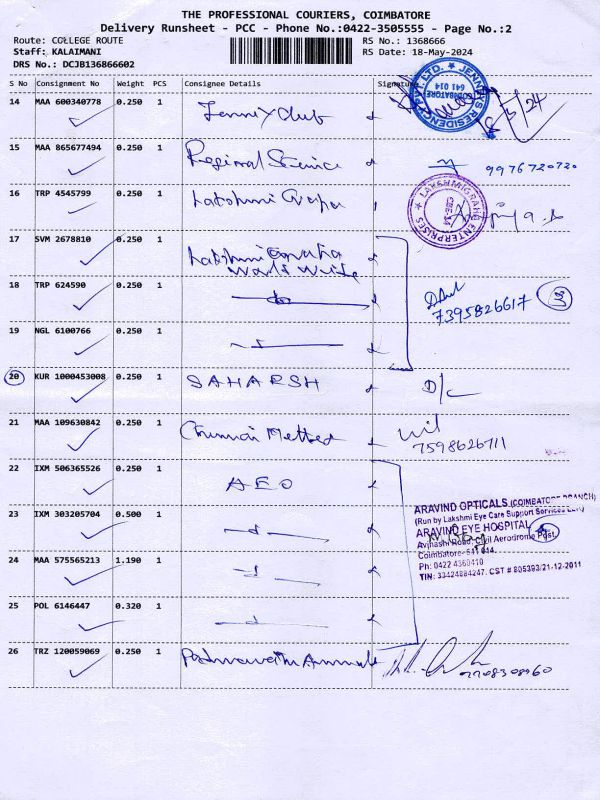 THE PROFESSIONAL COURIERS, COIMBATORE
Delivery Runsheet - PCC - Phone No.:0422-3505555 - Page No.:2
Route: COLLEGE ROUTE RS No.: 1368666
Staff: KALAIMANI RS Date: 18-May-2024
DRS No.: DCJB136866602
S No Consignment No Weight PCS Consignee Details Signature
14 MAA 600340778 0.250 1
JENNEYS RESIDENCY PVT. LTD.
COIMBATORE 641 014
15 MAA 865677494 0.250 1 Regional Science
9976720720
16 TRP 4545799 0.250 1 Lakshmi
LAKSHMIGRAHA ENTERPRISES
17 SVM 2678810 0.250 1 Lakshmi
World Wide
18 TRP 624590 0.250 1
7395826617
19 NGL 6100766 0.250 1
20 KUR 1000453008 0.250 1 SAHARSH D/c
21 MAA 109630842 0.250 1 Chennai
7598626711
22 IXM 506365526 0.250 1 AEO
23 IXM 303205704 0.500 1
ARAVIND OPTICALS (COIMBATORE BRANCH)
(Run by Lakshmi Eye Care Support Services
ARAVIND EYE HOSPITAL
Avinashi Road, Civil Aerodrome Post,
Coimbatore-641 014.
Ph: 0422 4360410
TIN: 33424884247. CST # 805393/21-12-2011
24 MAA 575565213 1.190 1
25 POL 6146447 0.320 1
26 TRZ 120059069 0.250 1 Padmavathi Ammal